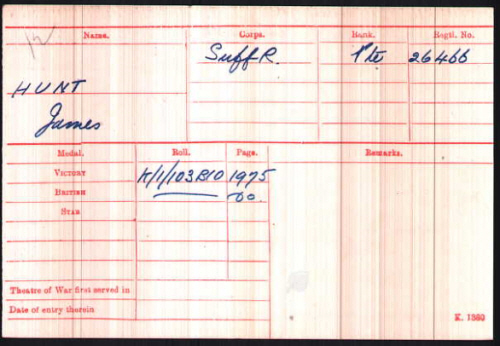 12
Name. Corps. Rank. Regtl. No.
Suff R. Pte 26466
HUNT
James
Medal. Roll. Page. Remarks.
VICTORY K/1/103B10 1975
BRITISH do.
STAR
Theatre of War first served in
Date of entry therein
K. 1380